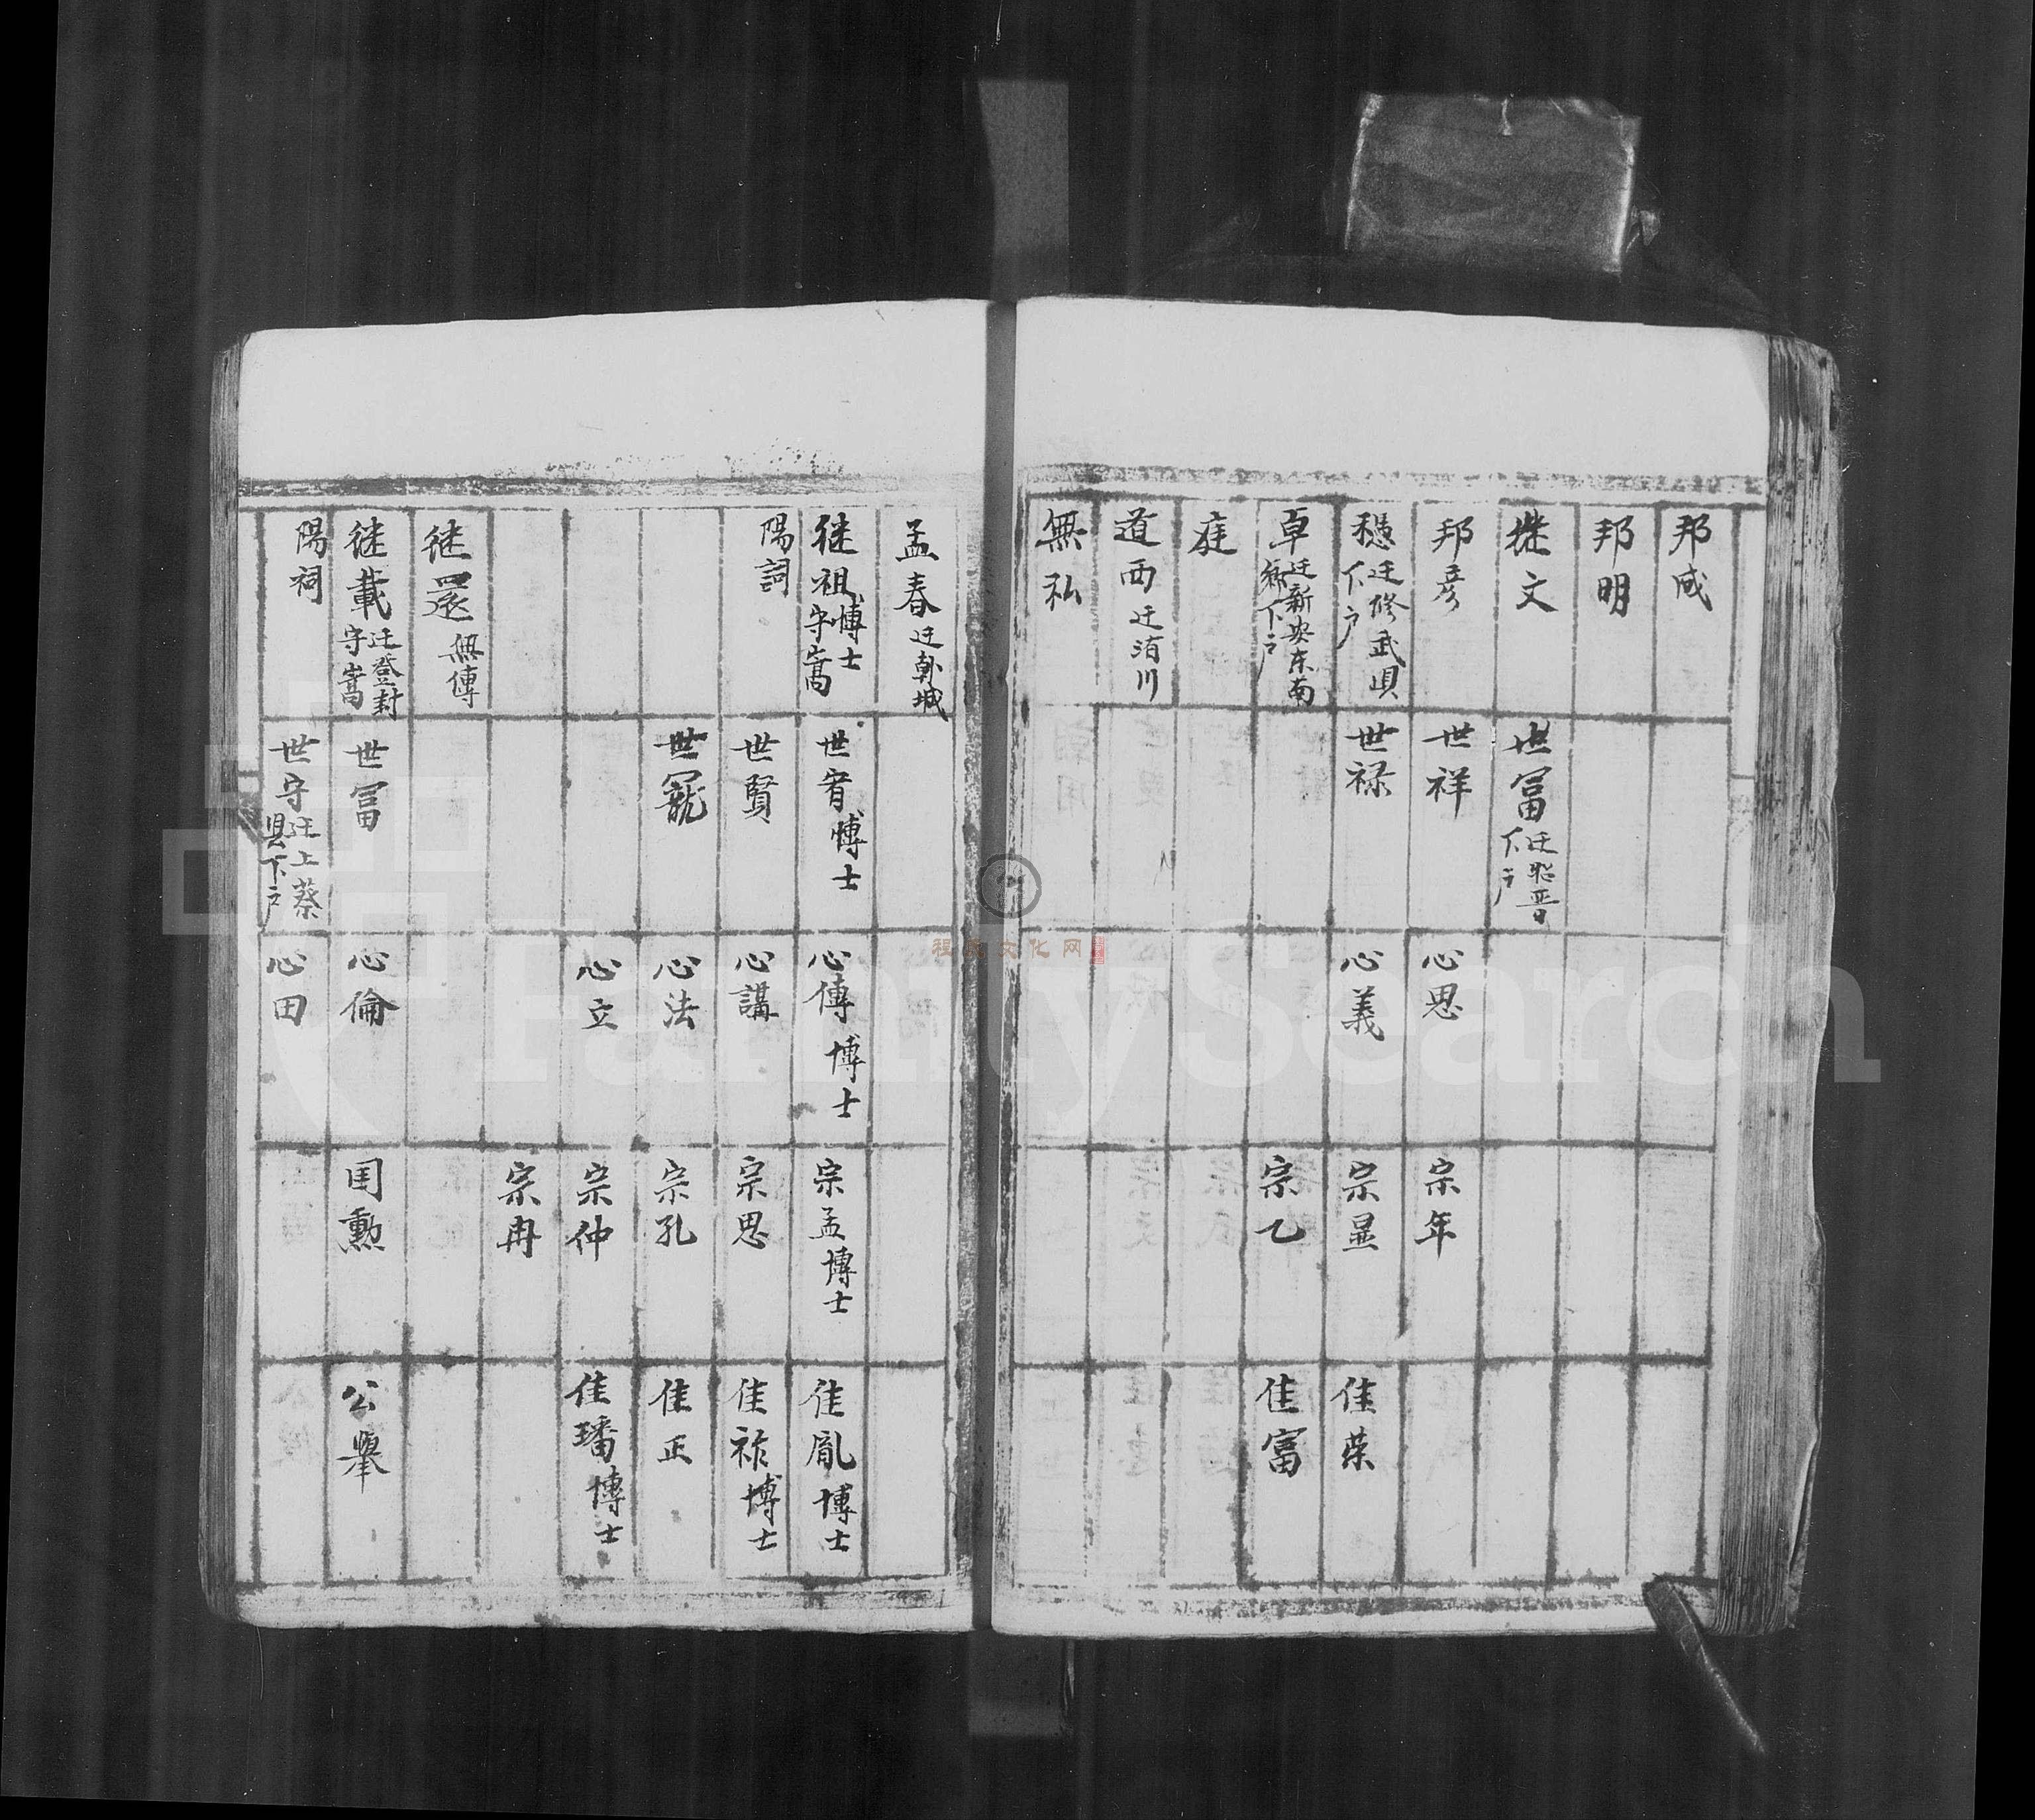 邦咸
邦明
继文
邦彦
穏 迁修武
下户
卓 迁新安东南
下户
庭
道西 迁洧川
無私
世冨 迁
下户
世祥
世禄
心思
心義
宗年
宗显
宗乙
佳荣
佳富
孟春 迁郭城
继祖 博士
守嵩
陽詞
继還 無傳
继載 迁登封
守嵩
陽祠
世宥 博士
世賢
世寵
世冨
世守 迁上蔡
县下户
心傳 博士
心講
心法
心立
心倫
心田
宗孟 博士
宗思
宗孔
宗仲
宗冉
国勲
佳胤 博士
佳祚 博士
佳正
佳璠 博士
公舉
FamilySearch